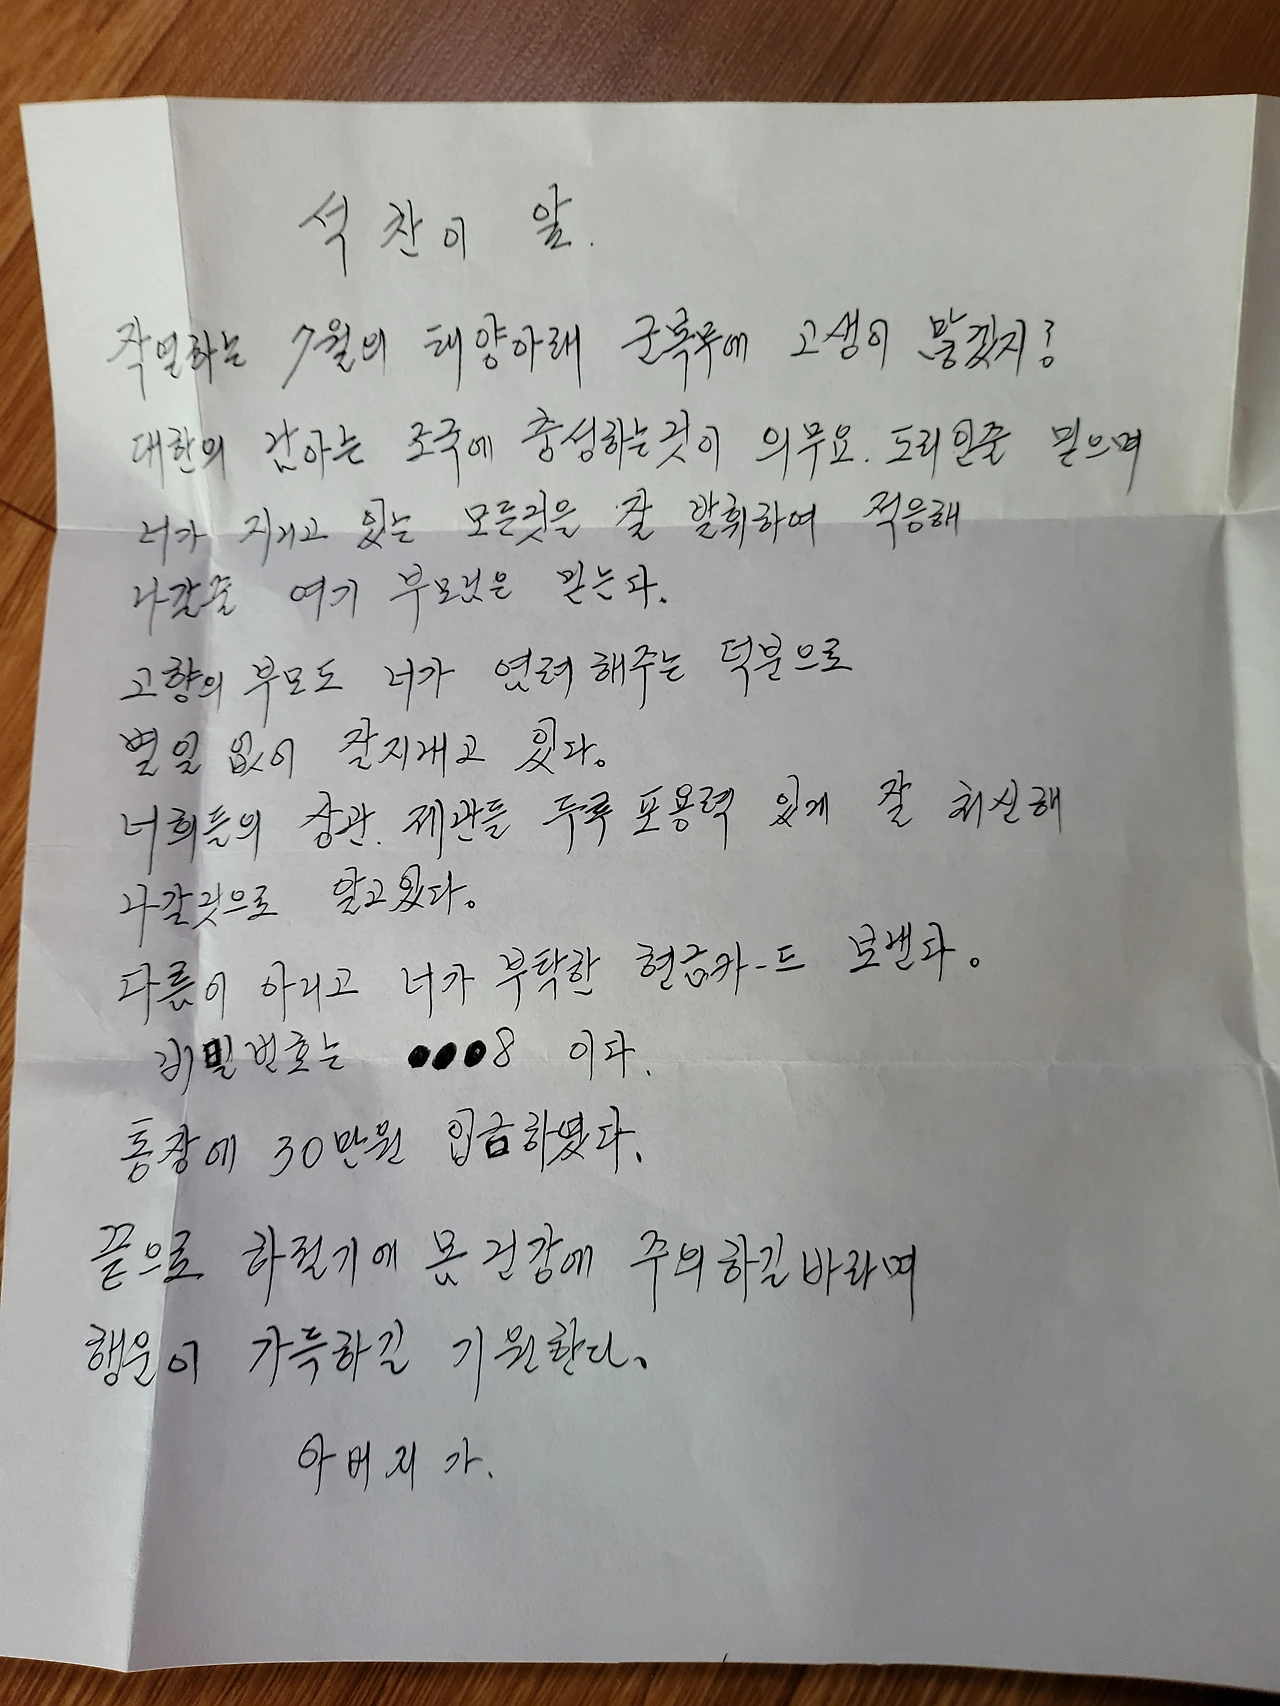 석찬이 앞.
작열하는 7월의 태양아래 군복무에 고생이 많겠지!
대한의 남아는 조국에 충성하는것이 의무요. 도리인줄 믿으며
너가 지니고 있는 모든것을 잘 발휘하여 적응해
나갈줄 여기 부모님은 믿는다.
고향의 부모도 너가 염려해주는 덕분으로
별일 없이 잘지내고 있다.
너희들의 상관. 제관들 두루 포용력 있게 잘 처신해
나갈것으로 알고있다.
다름이 아니고 너가 부탁한 현금카-드 보낸다.
비밀번호는 ●●●8 이다.
통장에 30만원 입금하였다.
끝으로 하절기에 몸 건강에 주의하길 바라며
행운이 가득하길 기원한다.
아버지가.